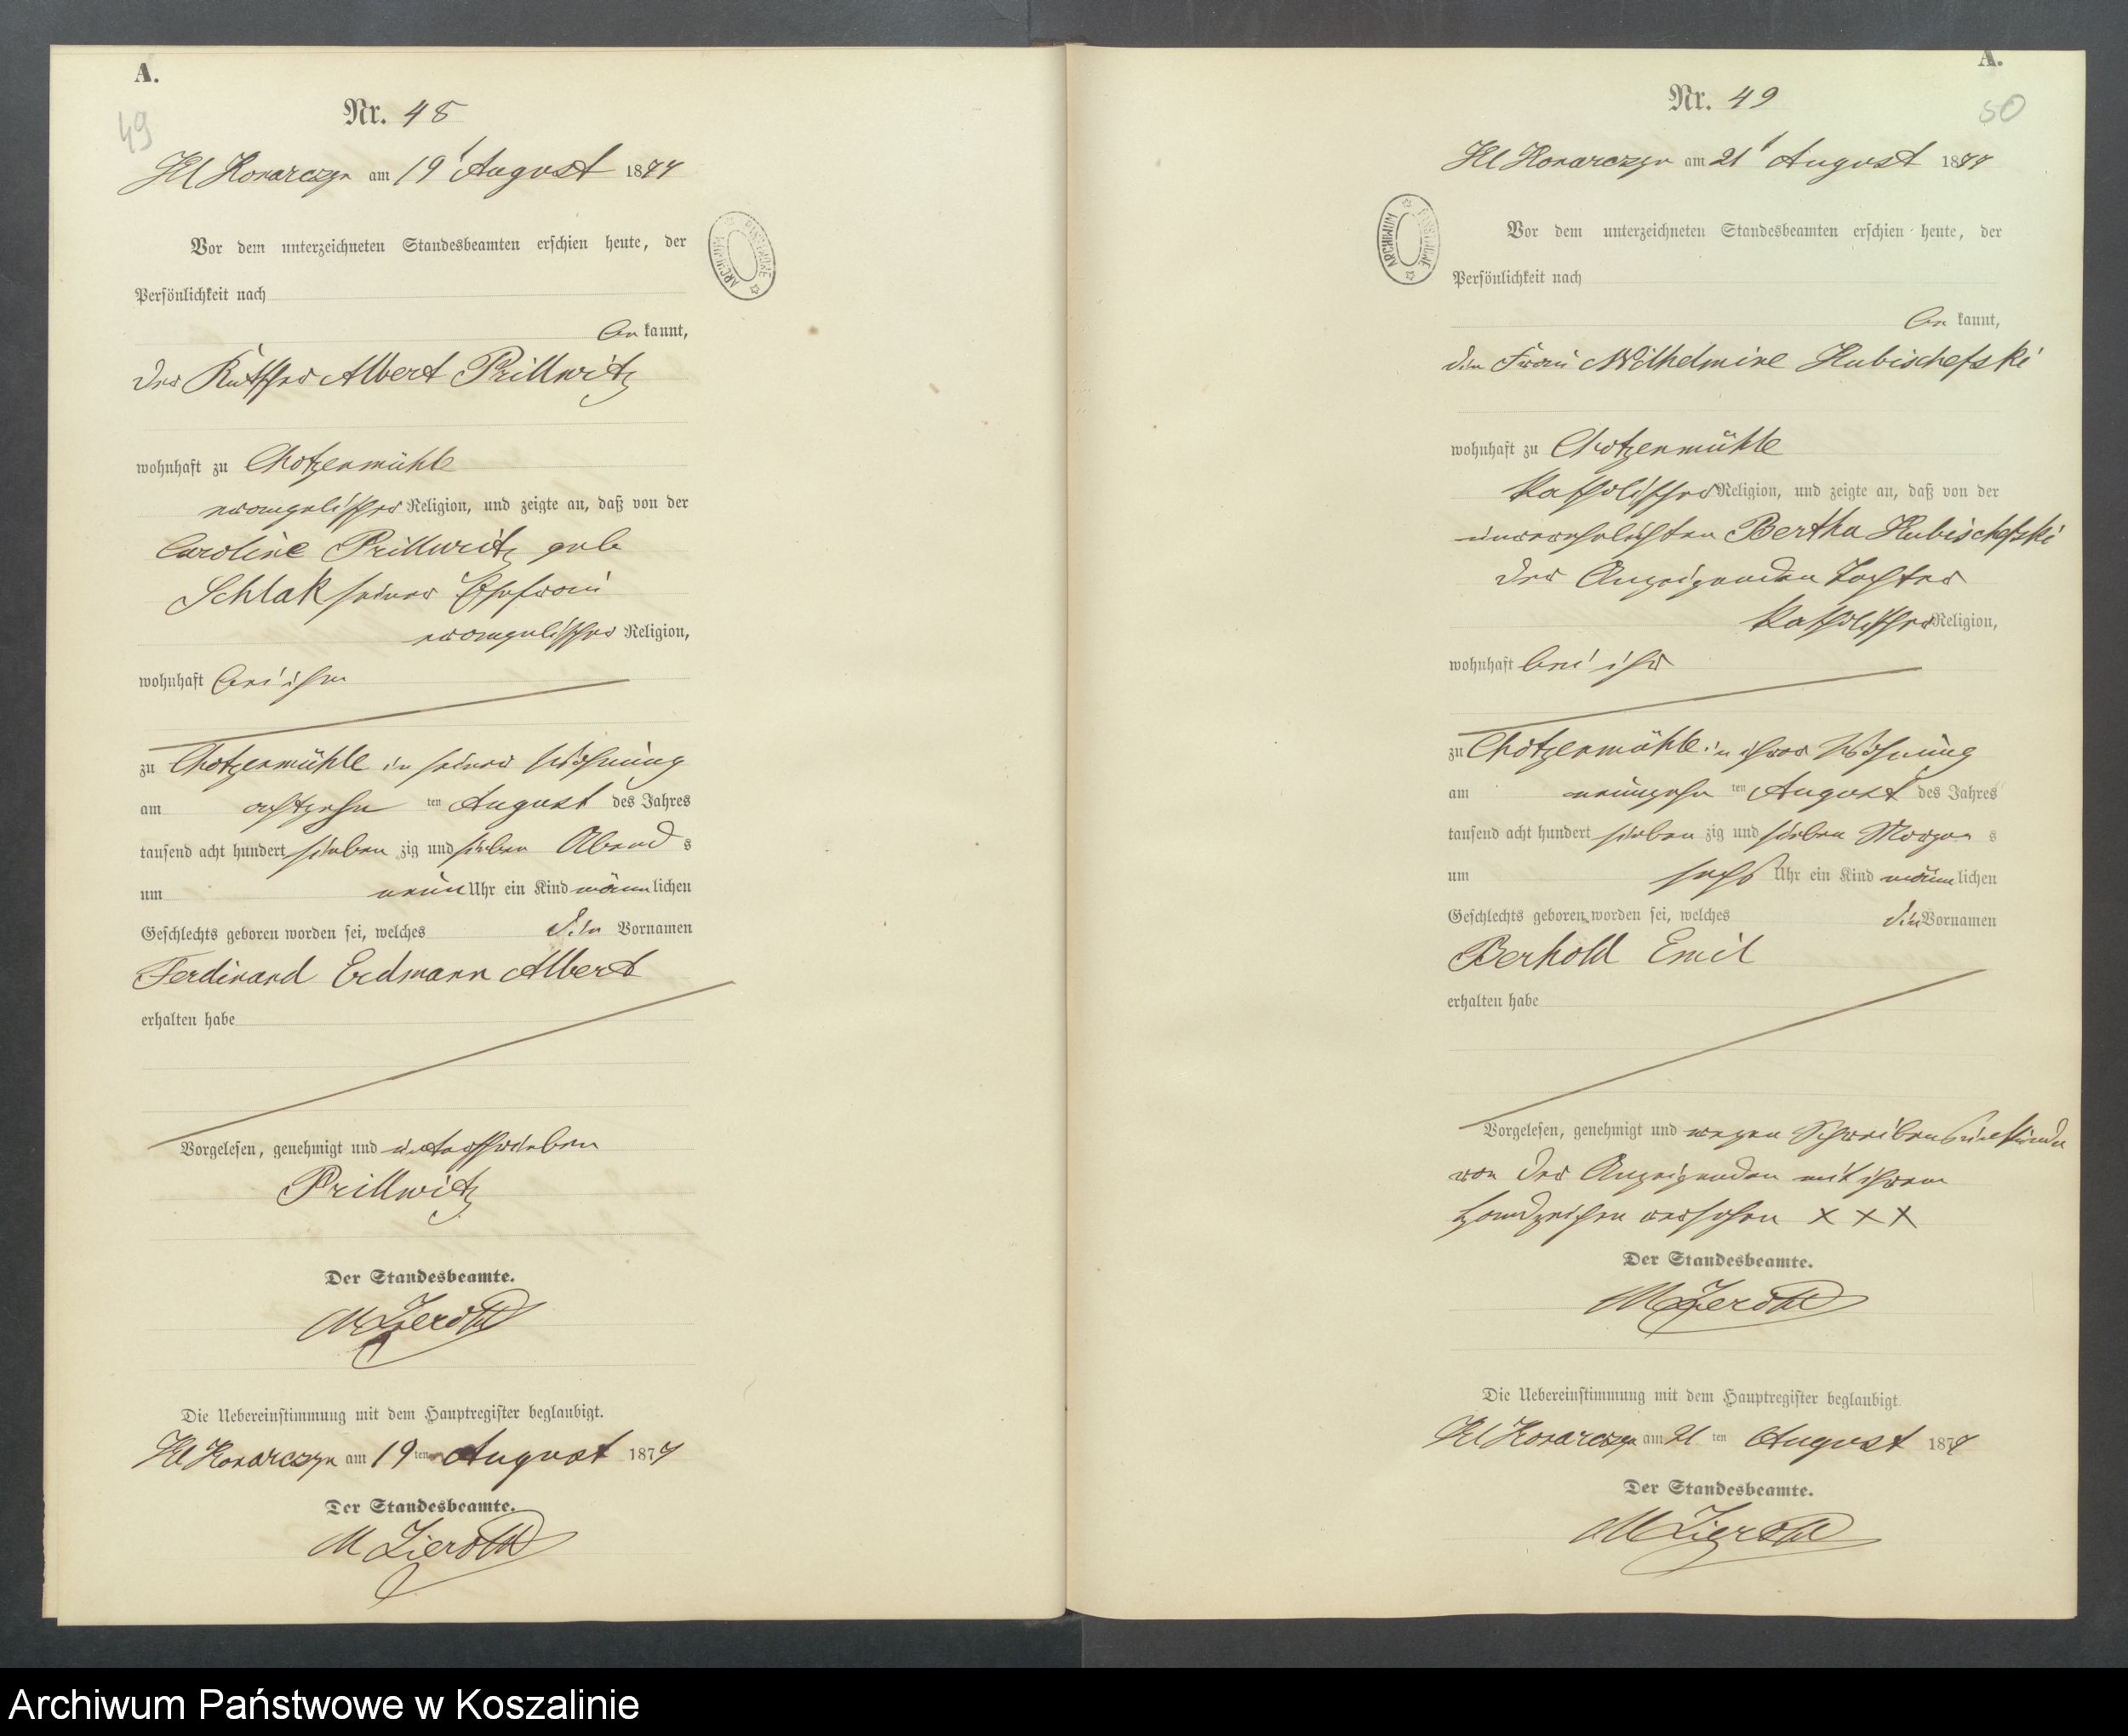 A.
49
Nr. 48
Kl Konarczyn am 19t August 1877
Vor dem unterzeichneten Standesbeamten erschien heute, der
Persönlichkeit nach
be kannt,
der Kutscher Albert Prillwitz
wohnhaft zu Chotzenmühle
evangelischer Religion, und zeigte an, daß von der
Caroline Prillwitz geb
Schlak seiner Ehefrau
evangelischer Religion,
wohnhaft bei ihm
zu Chotzenmühle in seiner Wohnung
am achtzehn ten August des Jahres
tausend acht hundert sieben zig und sieben Abend s
um neun Uhr ein Kind männ lichen
Geschlechts geboren worden sei, welches die Vornamen
Ferdinand Erdmann Albert
erhalten habe
Vorgelesen, genehmigt und unterschrieben
Prillwitz
Der Standesbeamte.
M Zieroth
Die Uebereinstimmung mit dem Hauptregister beglaubigt.
Kl Konarczyn am 19 ten August 1877
Der Standesbeamte.
M Zieroth
ARCHIWUM PAŃSTWOWE
A.
50
Nr. 49
Kl Konarczyn am 21t August 1877
Vor dem unterzeichneten Standesbeamten erschien heute, der
Persönlichkeit nach
be kannt,
die Frau Wilhelmine Kubischefski
wohnhaft zu Chotzenmühle
katholischer Religion, und zeigte an, daß von der
unverehelichten Bertha Kubischefski
der Anzeigenden Tochter
katholischer Religion,
wohnhaft bei ihr
zu Chotzenmühle in ihrer Wohnung
am neunzehn ten August des Jahres
tausend acht hundert sieben zig und sieben Morgen s
um sechs Uhr ein Kind männ lichen
Geschlechts geboren worden sei, welches die Vornamen
Berhold Emil
erhalten habe
Vorgelesen, genehmigt und wegen Schreibensunkunde
von der Anzeigenden mit ihrem
Handzeichen versehen X X X
Der Standesbeamte.
M Zieroth
Die Uebereinstimmung mit dem Hauptregister beglaubigt
Kl Konarczyn am 21 ten August 1877
Der Standesbeamte.
M Zieroth
ARCHIWUM PAŃSTWOWE
Archiwum Państwowe w Koszalinie